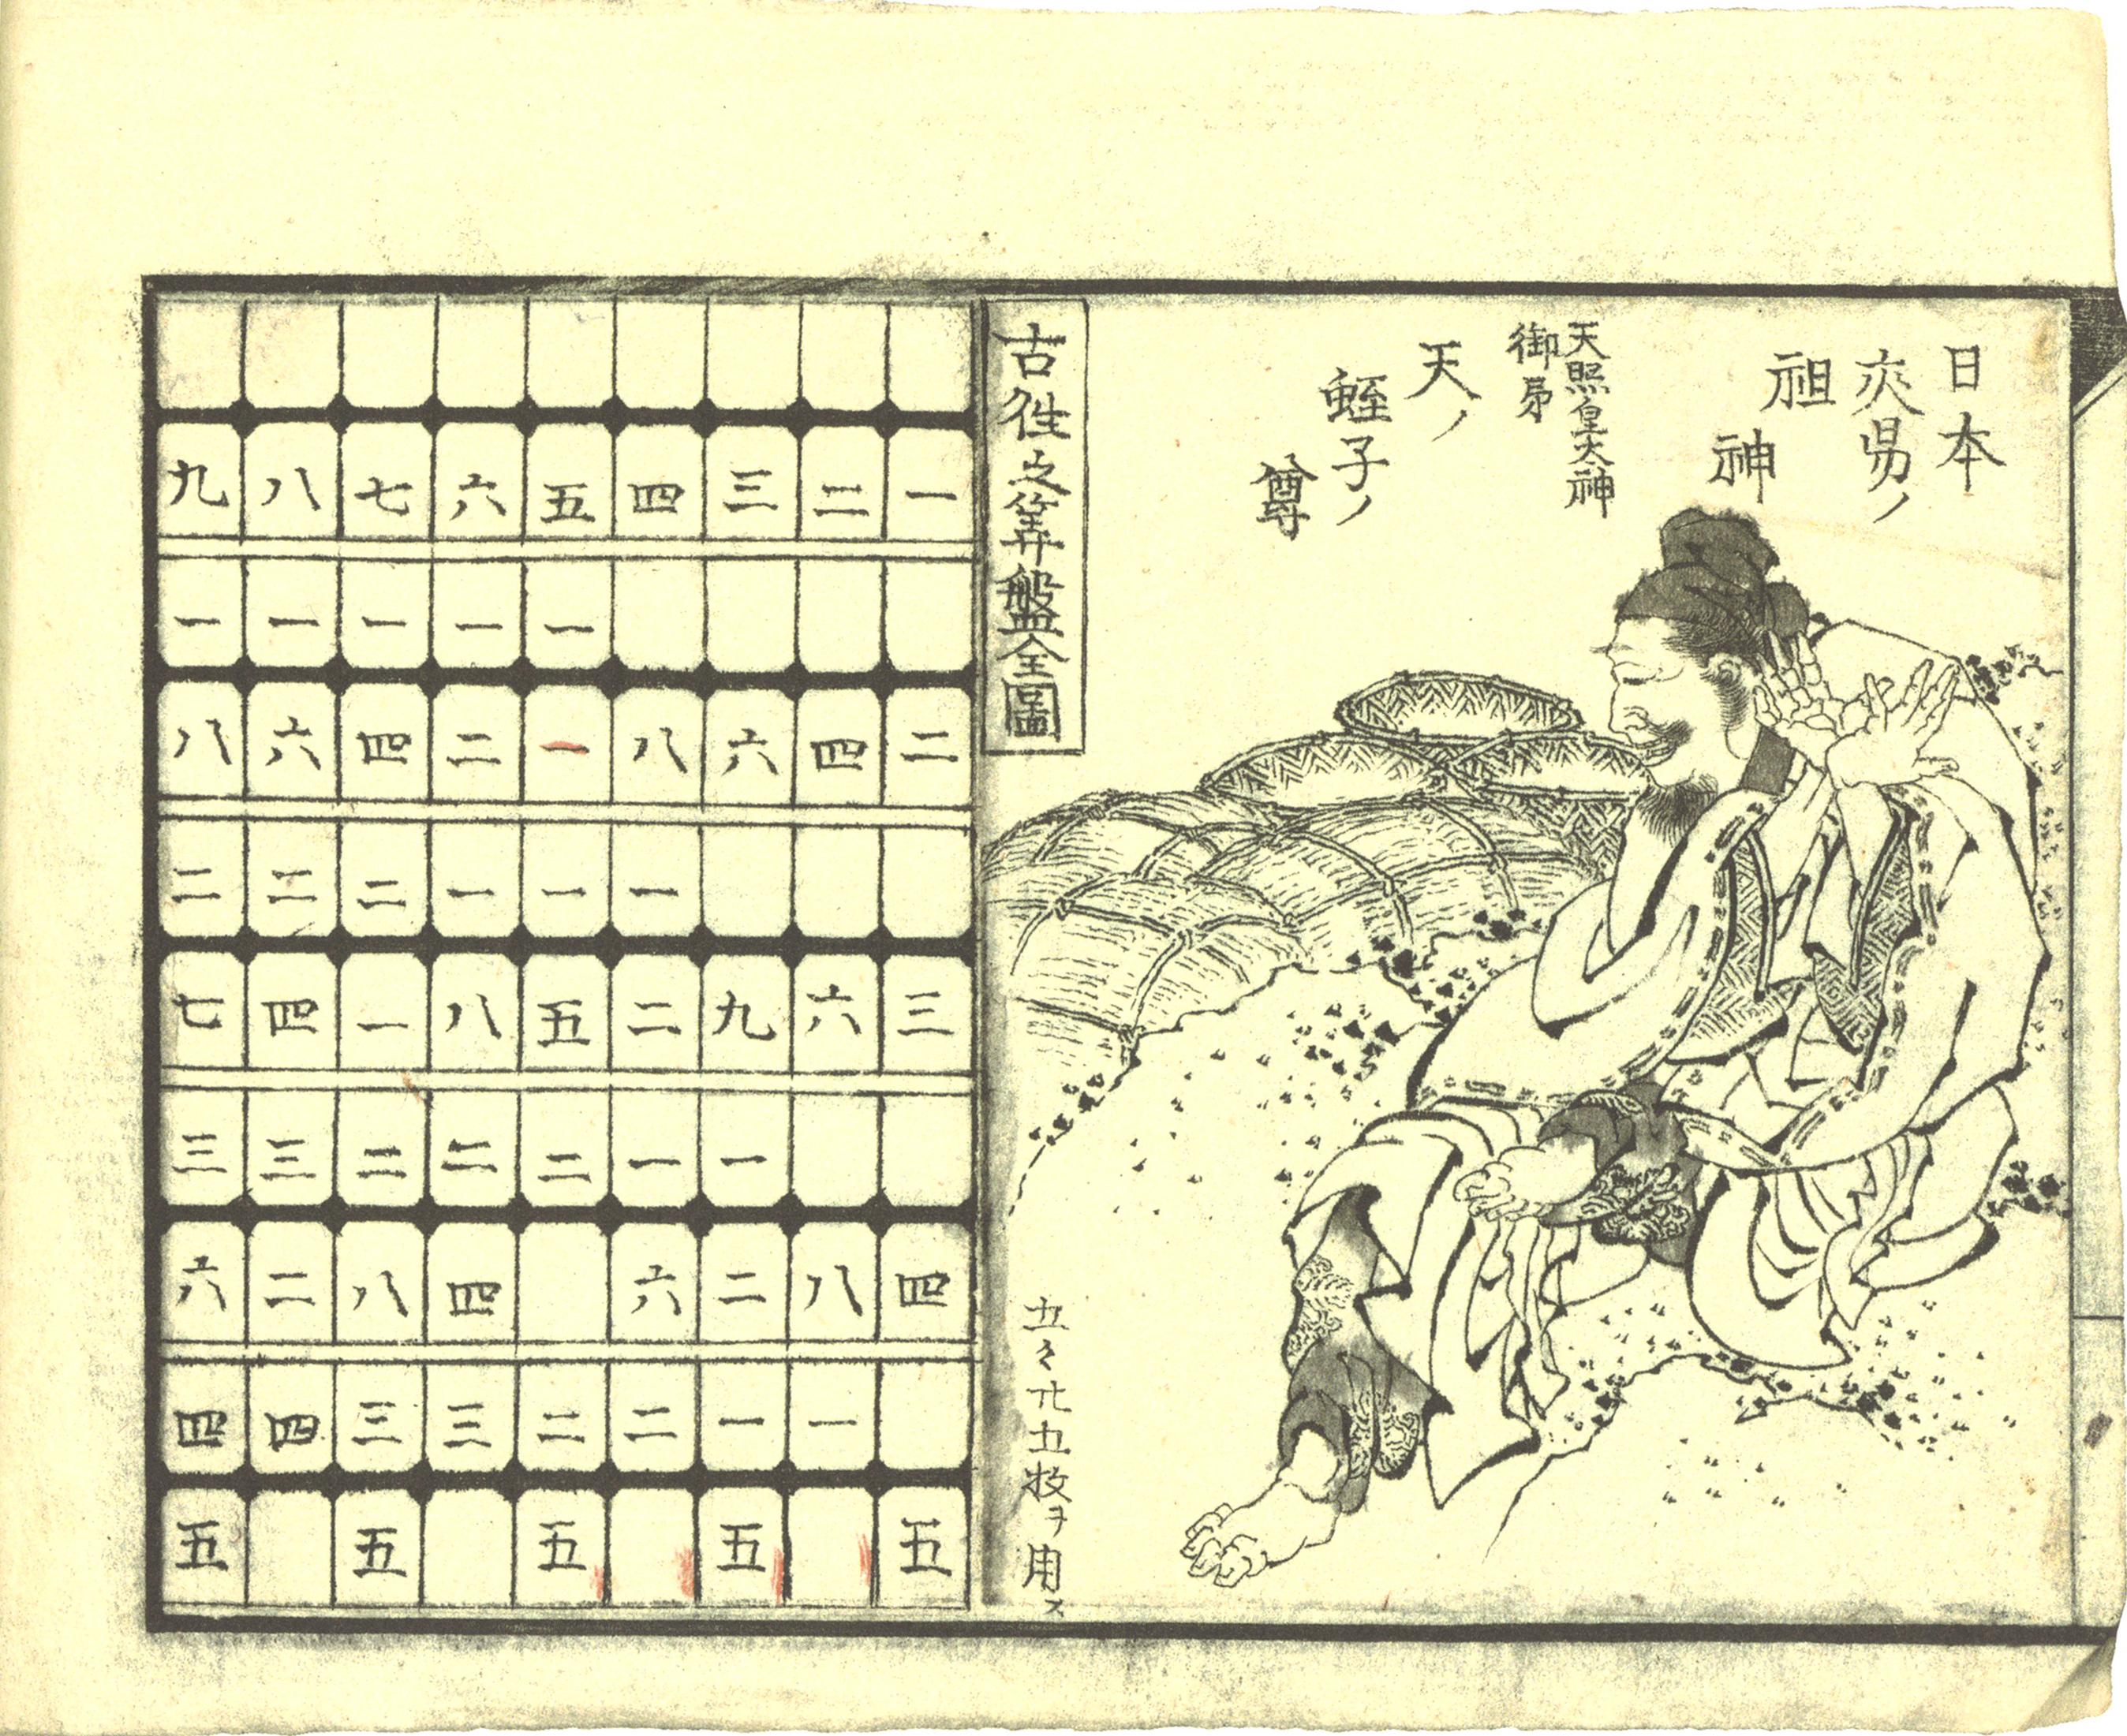 日本
交易ノ
祖
神
天照皇太神
御弟
天ノ
蛭子ノ
尊
古徃之筭盤全圖
五々廿五枚ヲ用ス
一 二 三 四 五 六 七 八 九
一 一 一 一 一
二 四 六 八 一 二 四 六 八
一 一 一 二 二 二
三 六 九 二 五 八 一 四 七
一 一 二 二 二 三 三
四 八 二 六 四 八 二 六
一 一 二 二 三 三 四 四
五 五 五 五 五